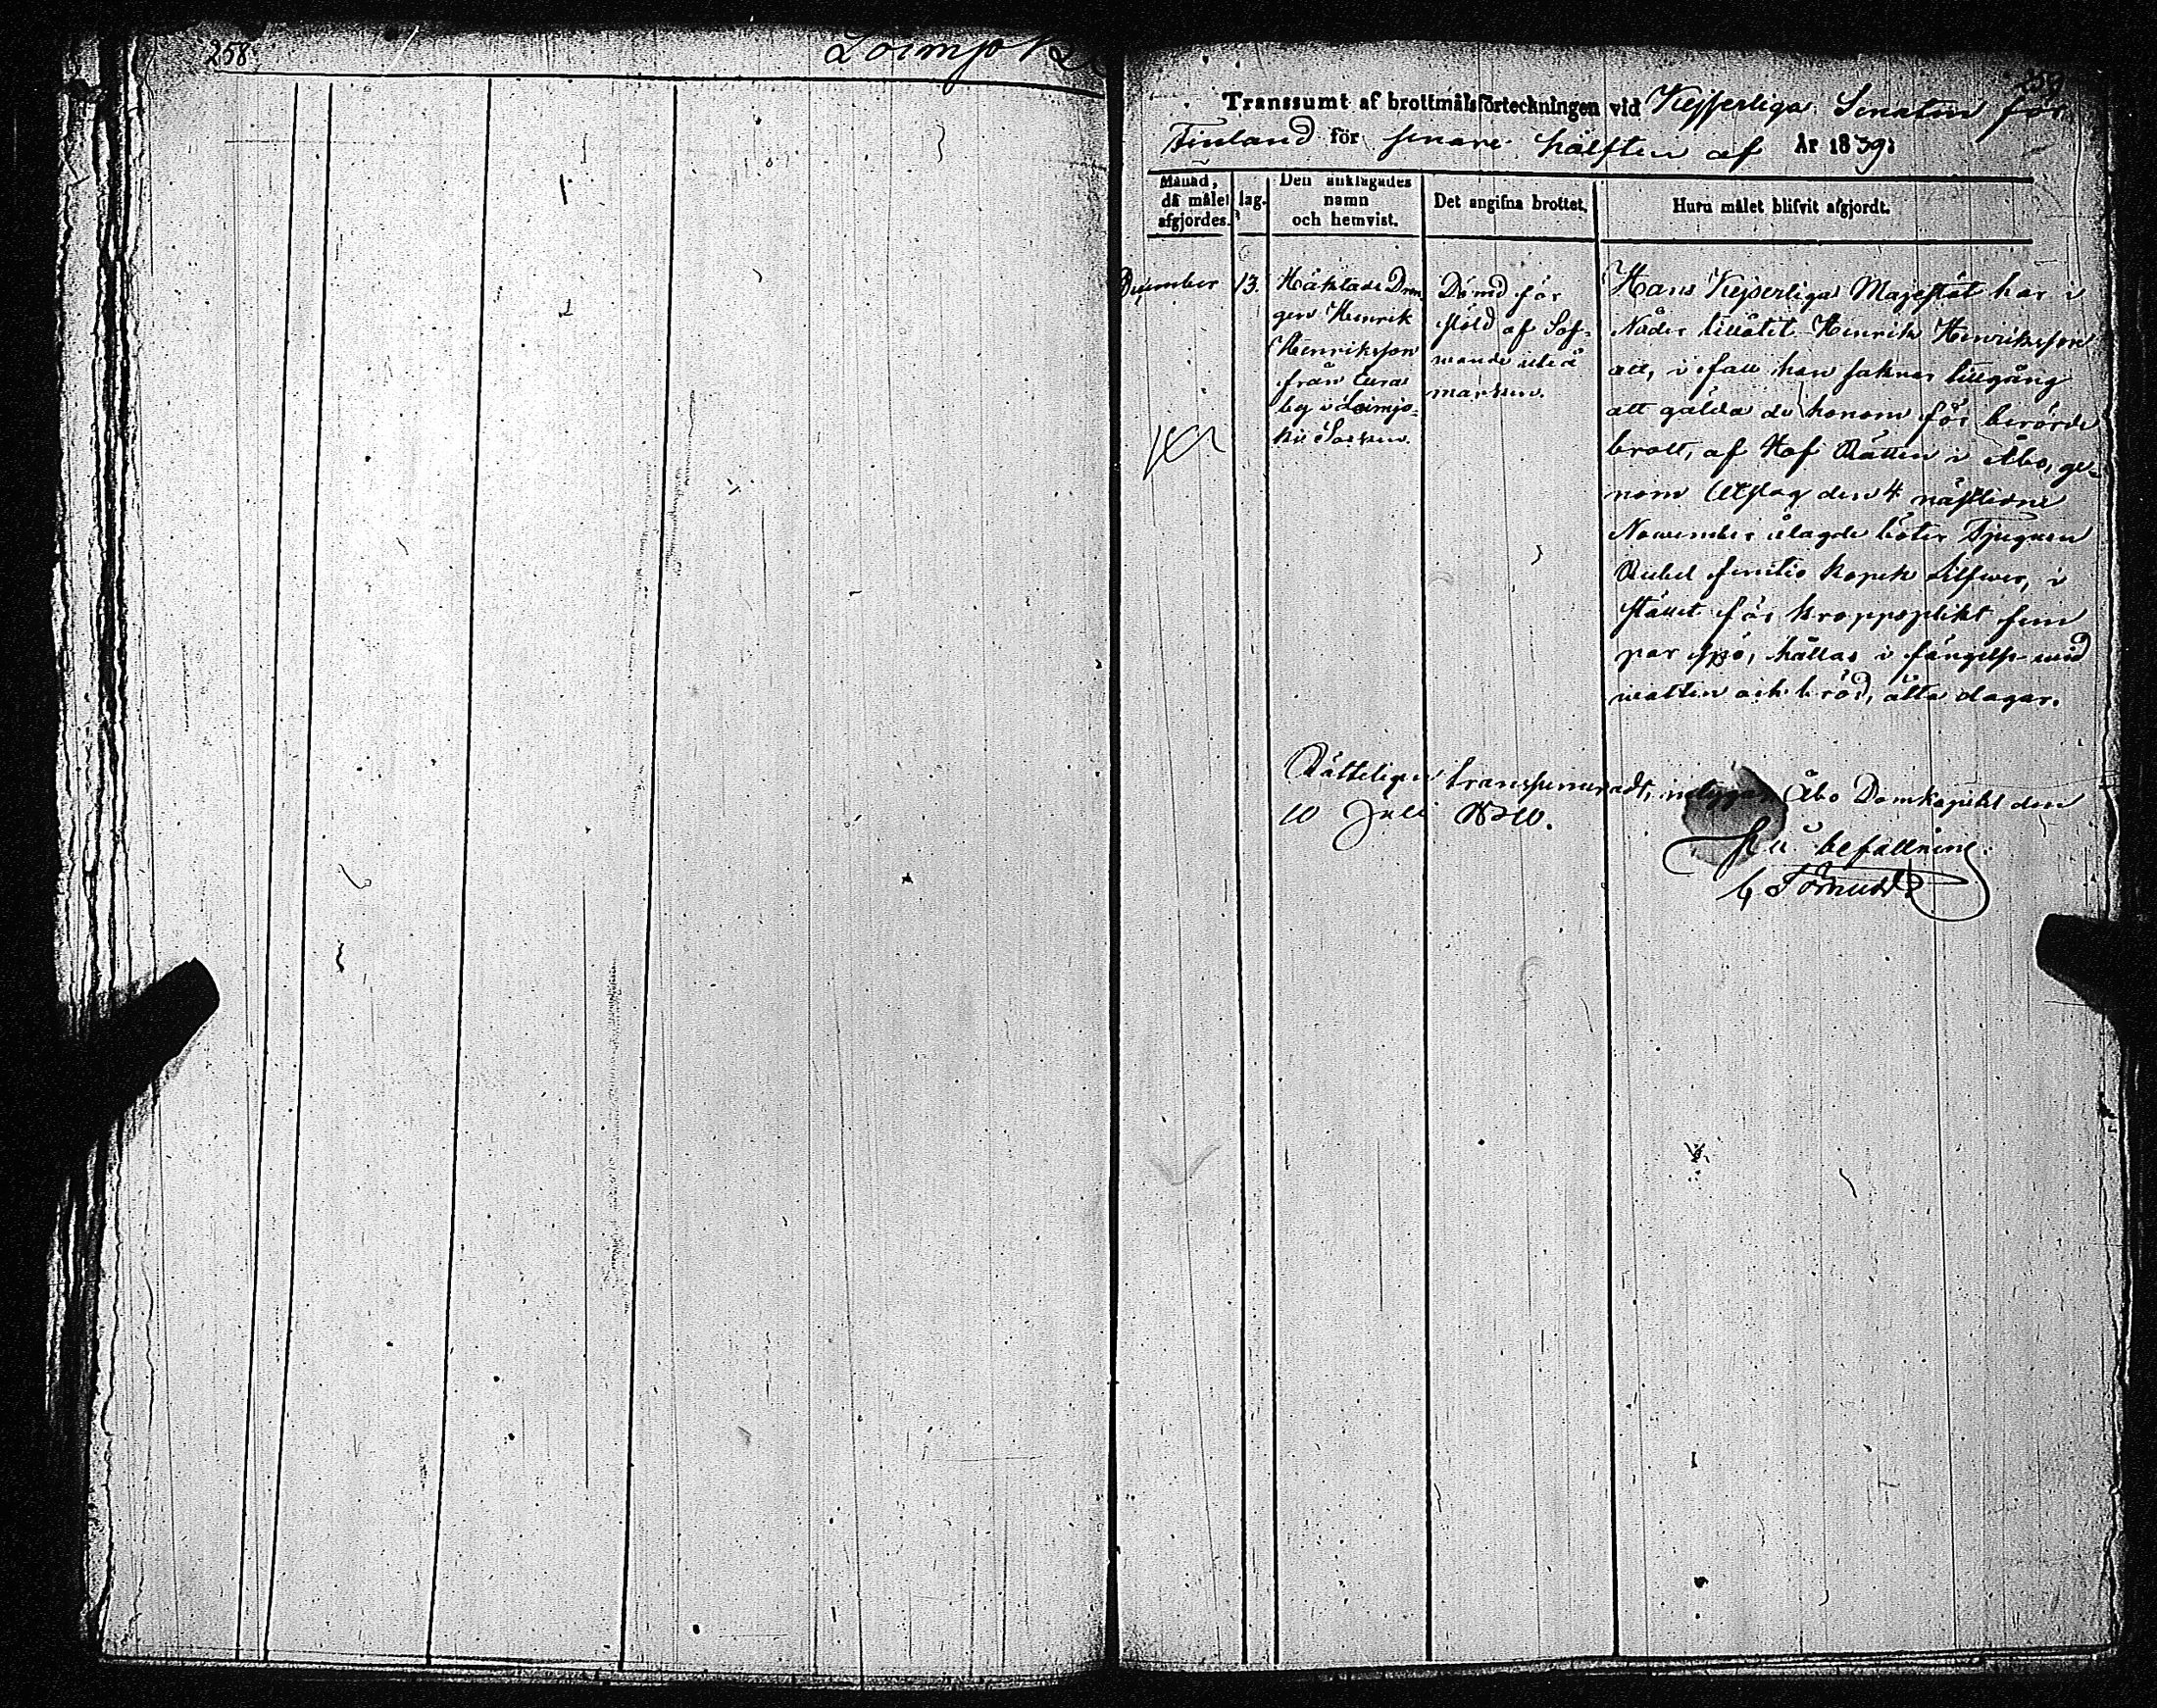 258.
Loimjo
259
Transsumt af brottmålsförteckningen vid Kejserliga Senaten för
Finland för senare hälften af År 1839.
Månad,
då målet
afgjordes.
Dag.
Den anklagades
namn
och hemvist.
Det angifna brottet.
Huru målet blifvit afgjordt.
December
13.
Häktade Dren-
gen Henrik
Henriksson
från Eura
by i Loimjo-
ki Socken.
Dömd för
stöld af Sof-
wande ute å
marken.
Hans Kejserliga Majestät har i
Nåder tillåtit Henrik Henriksson
att, i fall han saknar tillgång
att gälda de honom för berörde
brott, af Hof Rätten i Åbo, ge-
nom Utslag den 4 nästledne
November ålagde böter Tjugu en
Rubel femtio kopek Silfwer, i
stället för kroppsplikt fem
par spö, hållas i fängelse wid
watten och bröd, åtta dagar.
Rätteligen transsumeradt, intygar Åbo Domkapitel den
10 Juli 1840.
På befallning: